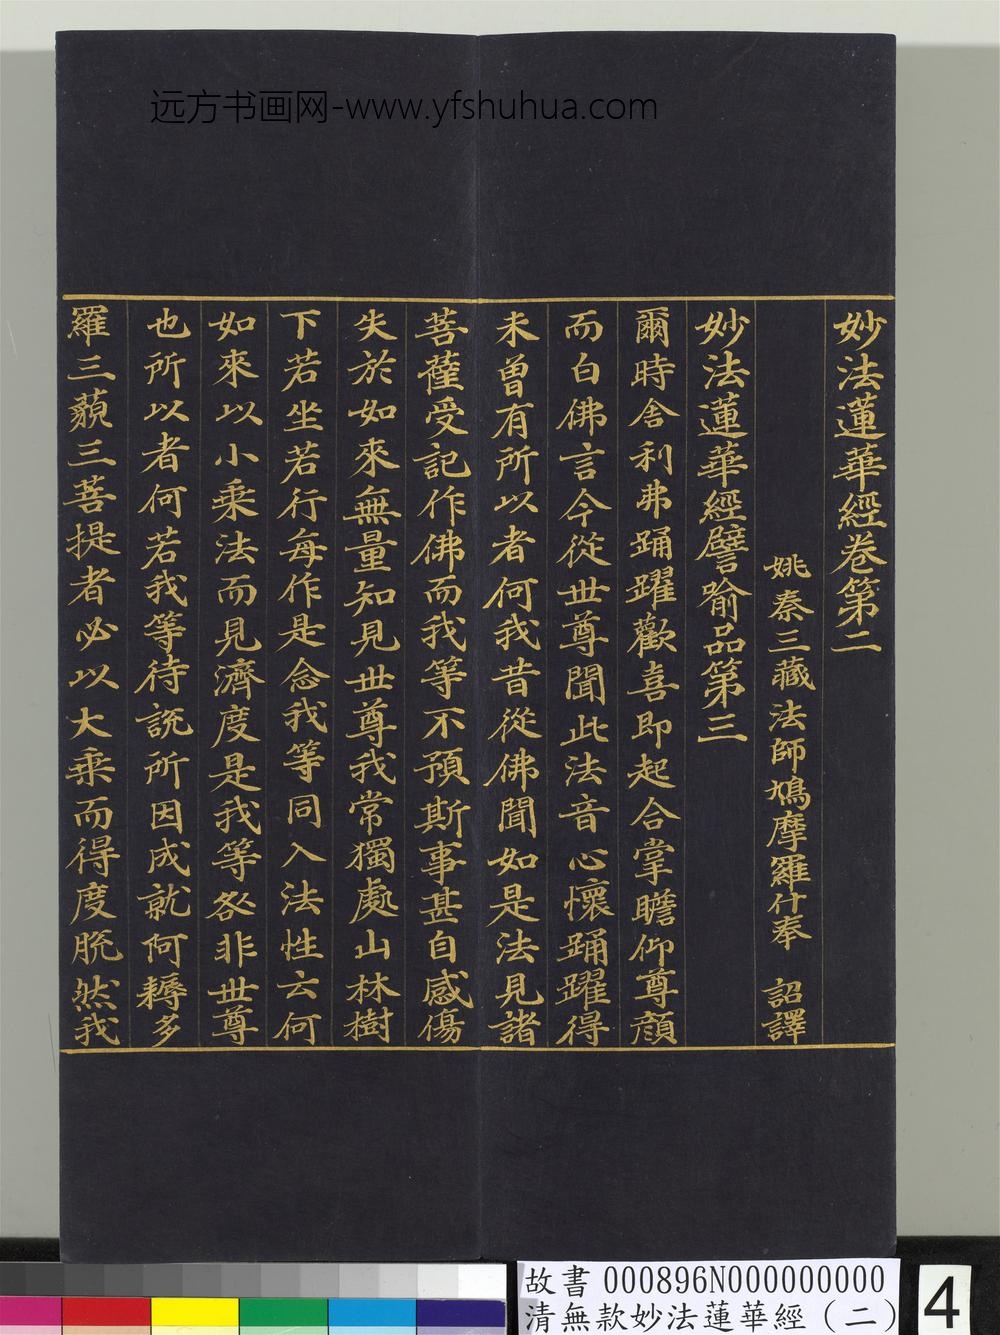 远方书画网-www.yfshuhua.com
妙法蓮華經卷第二
姚秦三藏法師鳩摩羅什奉 詔譯
妙法蓮華經譬喻品第三
爾時舍利弗踊躍歡喜即起合掌瞻仰尊顔
而白佛言今從世尊聞此法音心懷踊躍得
未曾有所以者何我昔從佛聞如是法見諸
菩薩受記作佛而我等不預斯事甚自感傷
失於如來無量知見世尊我常獨處山林樹
下若坐若行每作是念我等同入法性云何
如來以小乘法而見濟度是我等咎非世尊
也所以者何若我等待說所因成就阿耨多
羅三藐三菩提者必以大乘而得度脫然我
故書 000896N000000000
清無款妙法蓮華經（二）
4